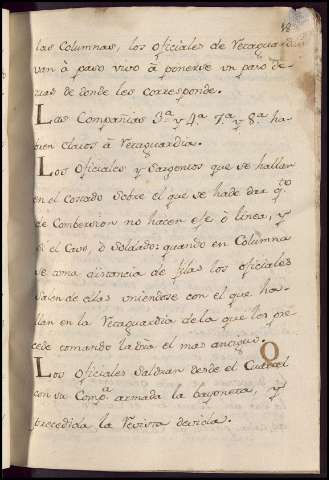 las Columnas, los oficiales de Retaguardia
van à paso vivo à ponerse un paso de-
tras de donde les corresponde.
Las Compañias 3ª y 4ª 7ª y 8ª ha-
cen claros à Retaguardia.
Los Oficiales y Sargentos que se hallan
en el Costado sobre el que se hade dar qto
de Combersion no hacen efe ò linea, y
si el Cavo, ò Soldado: quando en Columna
se toma distancia de filas los oficiales
salen de ellas uniendose con el que ha-
llan en la Retaguardia de la que los pre-
cede tomando la dra el mas antiguo.
Los Oficiales Saldran desde el Cuartel
con su Compª armada la bayoneta, y
precedida la Revista devida.